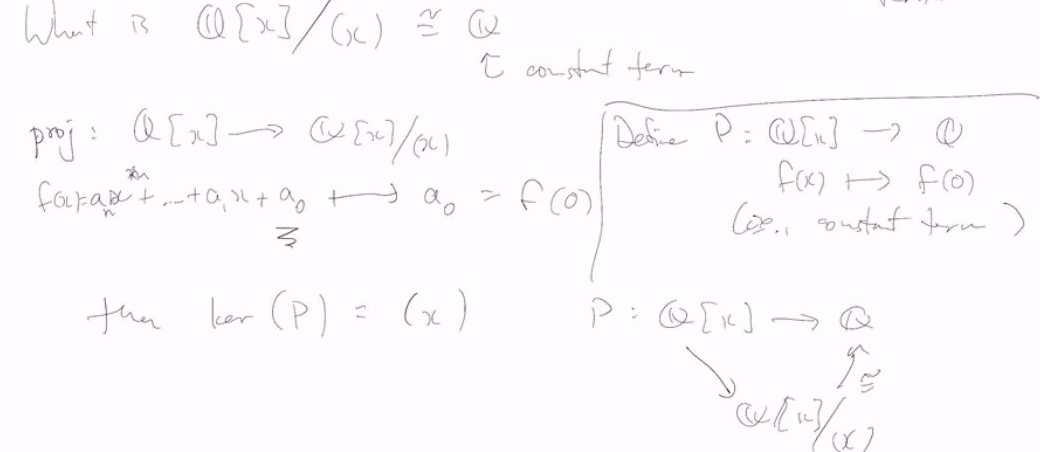 What is ℚ[x]/(x) ≅ ℚ
↑ constant term
proj: ℚ[x] → ℚ[x]/(x)
f(x)=aₙxⁿ+...+a₁x+a₀ ↦ a₀ = f(0)
Define P: ℚ[x] → ℚ
f(x) ↦ f(0)
constant term)
then ker(P) = (x)
P: ℚ[x] → ℚ
≅
ℚ[x]/(x)